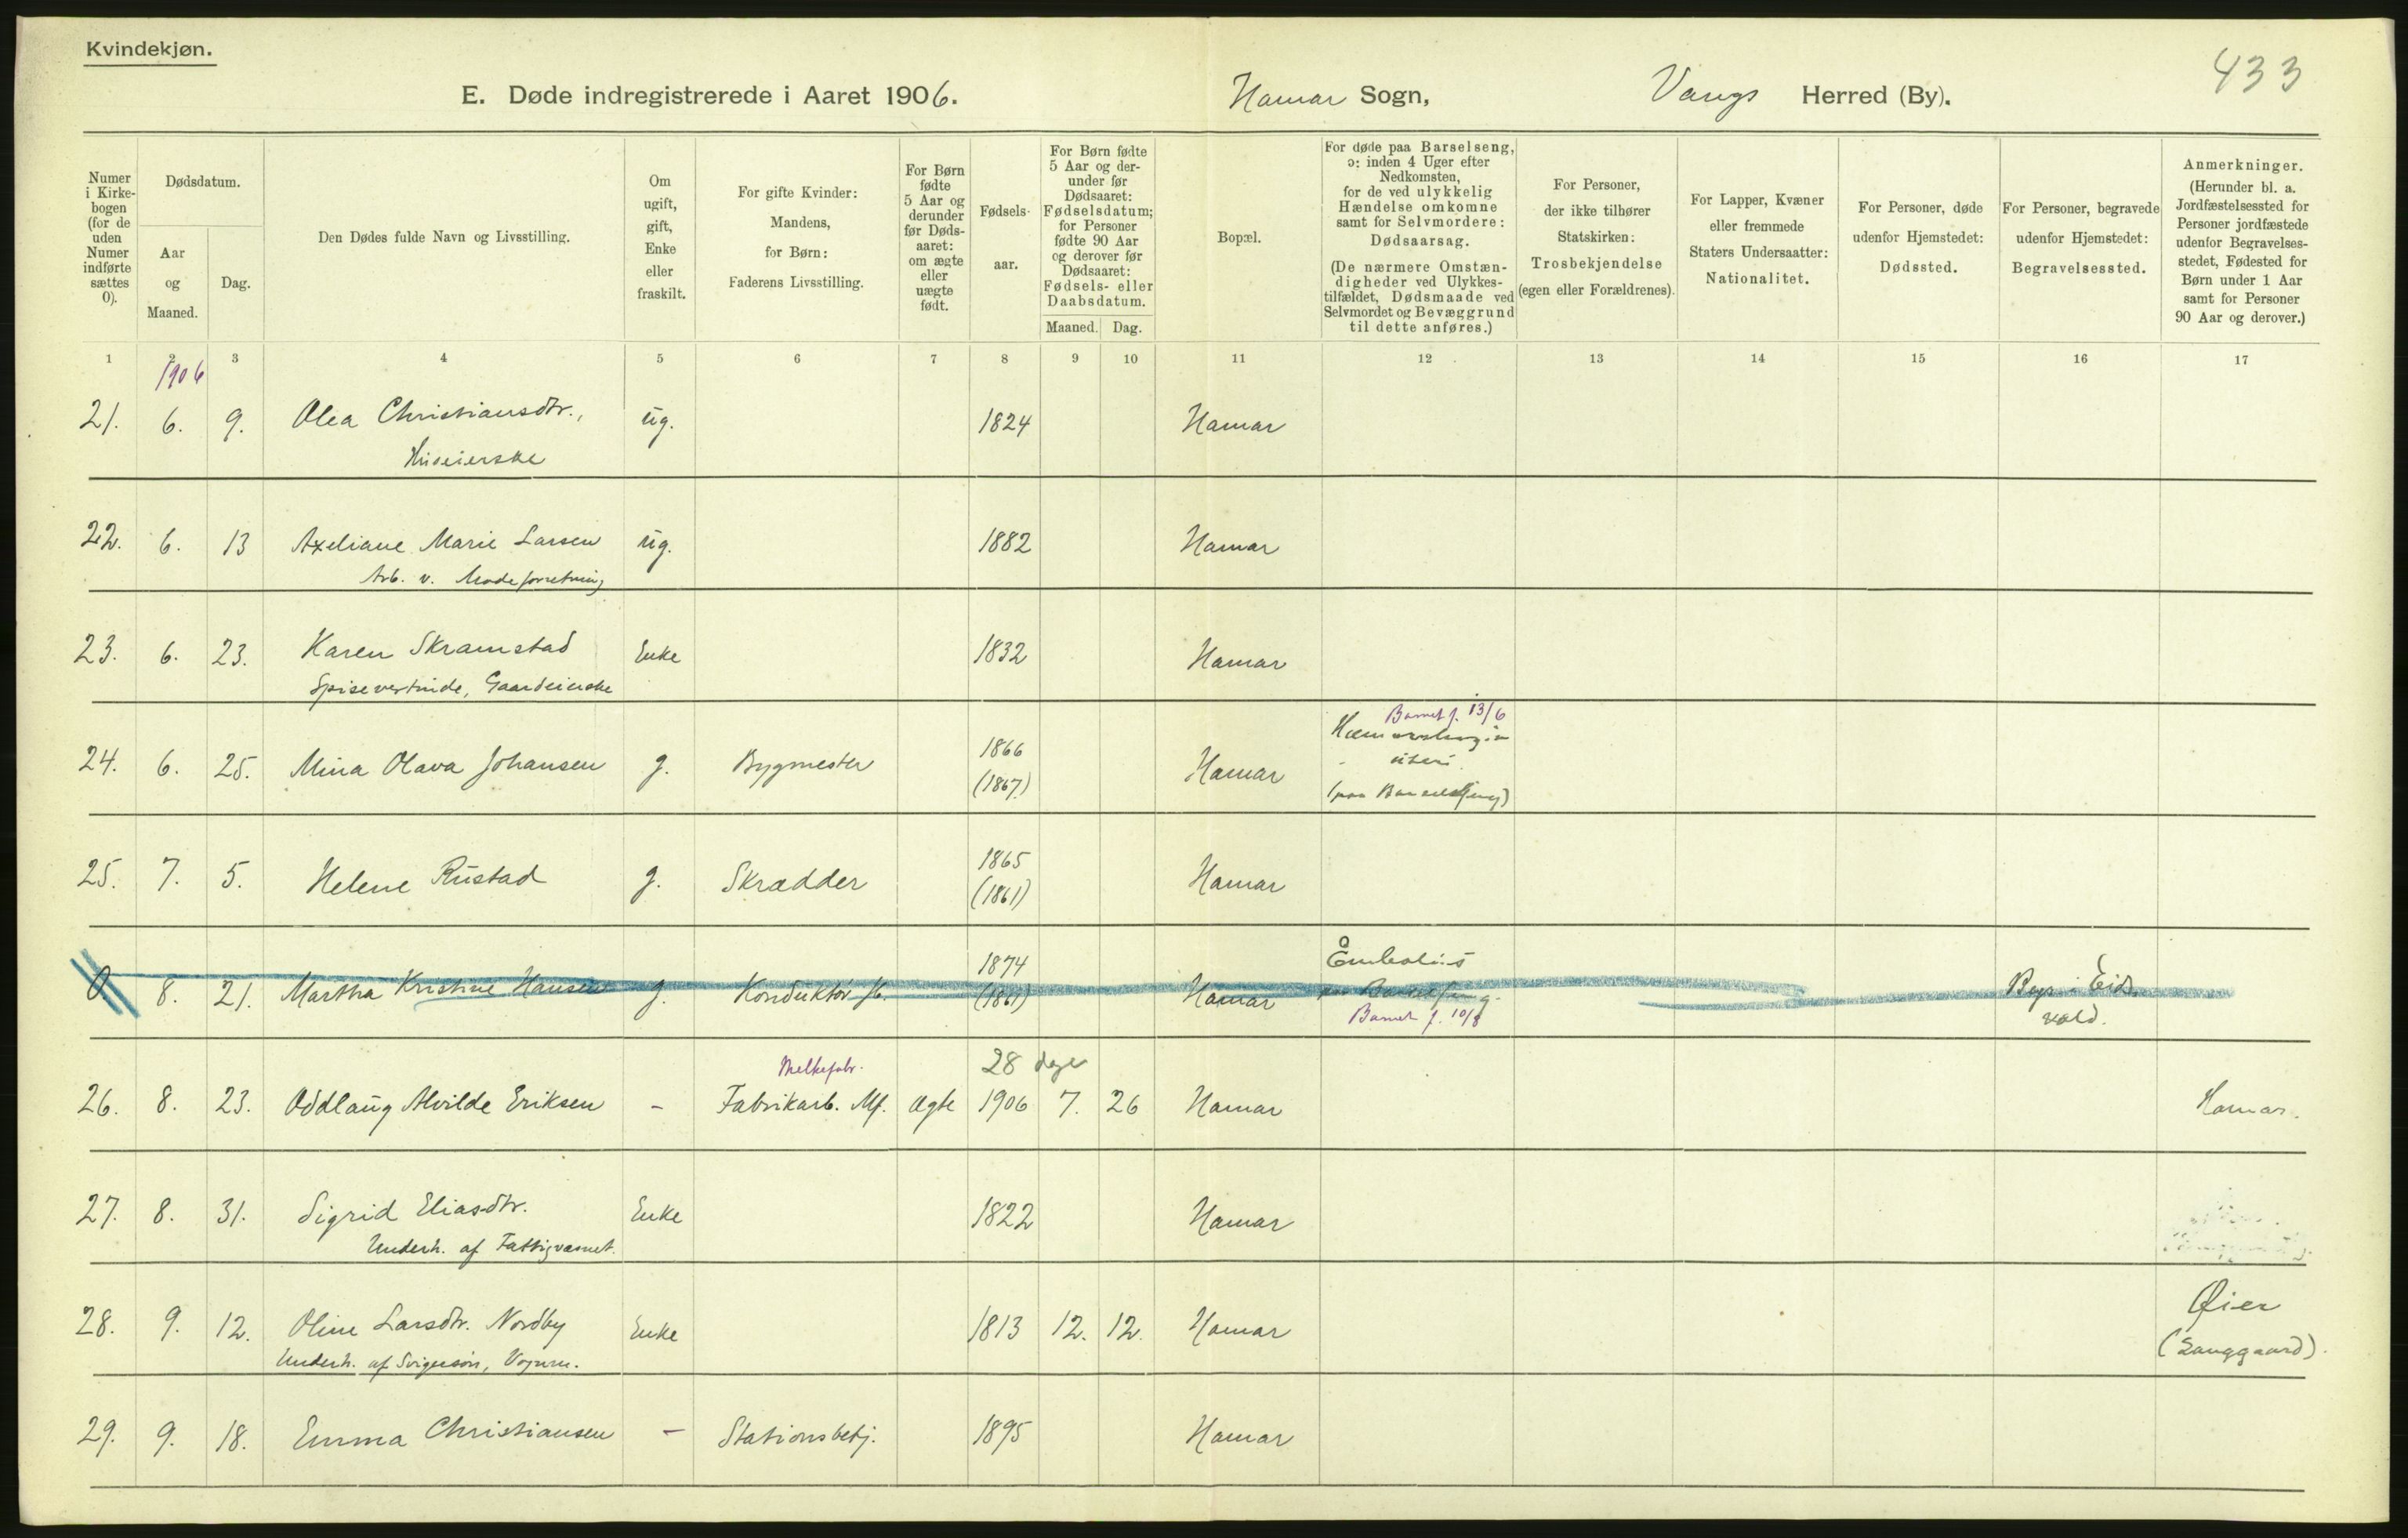 Kvindekjøn.
433
E. Døde indregistrerede i Aaret 1906. Hamar Sogn, Vangs Herred (By).
Numer
i Kirke-
bogen
(for de
uden
Numer
indførte
sættes
0).
Dødsdatum.
Aar
og
Maaned.
Dag.
Den Dødes fulde Navn og Livsstilling.
Om
ugift,
gift,
Enke
eller
fraskilt.
For gifte Kvinder:
Mandens,
for Børn:
Faderens Livsstilling.
For Børn
fødte
5 Aar og
derunder
før Døds-
aaret:
om ægte
eller
uægte
født.
Fødsels-
aar.
For Børn fødte
5 Aar og der-
under før
Dødsaaret:
Fødselsdatum;
for Personer
fødte 90 Aar
og derover før
Dødsaaret:
Fødsels- eller
Daabsdatum.
Maaned. Dag.
Bopæl.
For døde paa Barselseng,
ɔ: inden 4 Uger efter
Nedkomsten,
for de ved ulykkelig
Hændelse omkomne
samt for Selvmordere:
Dødsaarsag.
(De nærmere Omstæn-
digheder ved Ulykkes-
tilfældet, Dødsmaade ved
Selvmordet og Bevæggrund
til dette anføres.)
For Personer,
der ikke tilhører
Statskirken:
Trosbekjendelse
(egen eller Forældrenes).
For Lapper, Kvæner
eller fremmede
Staters Undersaatter:
Nationalitet.
For Personer, døde
udenfor Hjemstedet:
Dødssted.
For Personer, begravede
udenfor Hjemstedet:
Begravelsessted.
Anmerkninger.
(Herunder bl. a.
Jordfæstelsessted for
Personer jordfæstede
udenfor Begravelses-
stedet, Fødested for
Børn under 1 Aar
samt for Personer
90 Aar og derover.)
1 2 3 4 5 6 7 8 9 10 11 12 13 14 15 16 17
1906
21. 6. 9. Olea Christiansdtr., ug. 1824 Hamar
Huseierske
22. 6. 13 Axeliane Marie Larsen ug. 1882 Hamar
Arb. v. Modeforretning
23. 6. 23. Karen Skramstad Enke 1832 Hamar
Spisevertinde, Gaardeierske
Barnet f. 13/6
24. 6. 25. Mina Olava Johansen g. Bygmester 1866 (1867) Hamar Hæmorrhagia
uteri
(paa Barselseng)
25. 7. 5. Helene Rustad g. Skrædder 1865 (1861) Hamar
0. 8. 21. Martha Kristine Hansen g. Konduktør 1874 (1861) Hamar Embolus
paa Barselseng.
Barnet f. 10/8
Begr. i Eids-
vold.
Melkefabr. 28 dage
26. 8. 23. Oddlaug Alvilde Eriksen - Fabrikarb. Mf. ægte 1906 7. 26 Hamar Hamar.
27. 8. 31. Sigrid Eliasdtr. Enke 1822 Hamar
Underh. af Fattigvæsnet.
28. 9. 12. Oline Larsdtr. Nordby Enke 1813 12. 12. Hamar Øier
Underh. af Svigersøn, Vognm. (Langgaard).
29. 9. 18. Emma Christiansen - Stationsbetj. 1895 Hamar